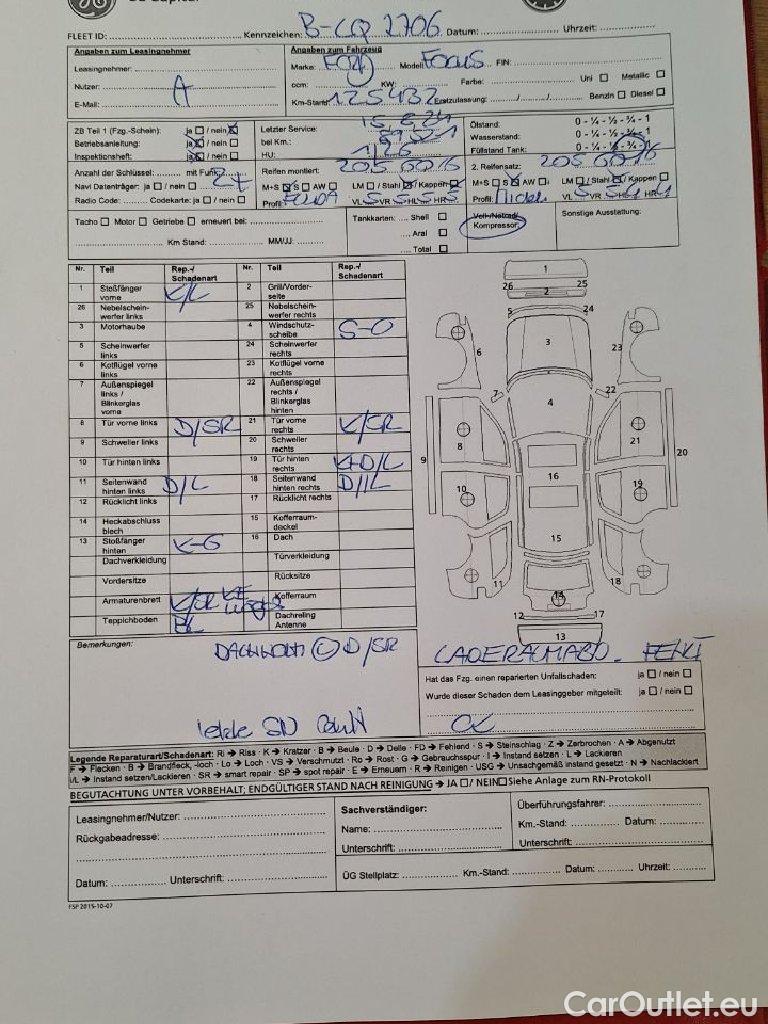 GE Capital
FLEET ID: Kennzeichen: B-CQ 2706 Datum: Uhrzeit:
Angaben zum Leasingnehmer
Leasingnehmer:
Nutzer: A
E-Mail:
Angaben zum Fahrzeug
Marke: FORD Modell: FOCUS FIN:
ccm: KW: Farbe: Uni Metallic
Km-Stand: 125432 Erstzulassung: / / Benzin Diesel
ZB Teil 1 (Fzg.-Schein): ja / nein
Betriebsanleitung: ja / nein
Inspektionsheft: ja / nein
Letzter Service: 15.8.24
bei Km.:
HU: 1/26
Ölstand: 0 - ¼ - ½ - ¾ - 1
Wasserstand: 0 - ¼ - ½ - ¾ - 1
Füllstand Tank: 0 - ¼ - ½ - ¾ - 1
Anzahl der Schlüssel: mit Funk: 2+
Navi Datenträger: ja / nein
Radio Code: Codekarte: ja / nein
Reifen montiert: 205 60 16
M+S S AW LM / Stahl / Kappen
Profil: FULDA VL 5 VR 5 HL 5 HR 5
2. Reifensatz: 205 60 16
M+S S AW LM / Stahl / Kappen
Profil: Michel. VL 5 VR 5 HL 4 HR 4
Tacho Motor Getriebe erneuert bei:
Km Stand: MM/JJ:
Tankkarten: Shell
Aral
Total
Voll-/Notrad/
Kompressor
Sonstige Ausstattung:
Nr. Teil Rep.-/ Schadenart Nr. Teil Rep.-/ Schadenart
1 Stoßfänger vorne K/L 2 Grill/Vorder-seite
26 Nebelschein-werfer links 25 Nebelschein-werfer rechts
3 Motorhaube 4 Windschutz-scheibe S-O
5 Scheinwerfer links 24 Scheinwerfer rechts
6 Kotflügel vorne links 23 Kotflügel vorne rechts
7 Außenspiegel links / Blinkerglas vorne 22 Außenspiegel rechts / Blinkerglas hinten
8 Tür vorne links D/SR 21 Tür vorne rechts K/SR
9 Schweller links 20 Schweller rechts
10 Tür hinten links 19 Tür hinten rechts K+D/L
11 Seitenwand hinten links D/L 18 Seitenwand hinten rechts D/L
12 Rücklicht links 17 Rücklicht rechts
14 Heckabschluss blech 15 Kofferraum-deckel
13 Stoßfänger hinten K-G 16 Dach
Dachverkleidung Türverkleidung
Vordersitze Rücksitze
Armaturenbrett Kofferraum
Teppichboden Dachreling Antenne
1
26 25
2
5 24
3
6 23
7 22
4
8 21
9 20
16
10 19
15
11 18
14
12 17
13
Bemerkungen:
D/SR
LADERAUMABD. FEHLT
Hat das Fzg. einen reparierten Unfallschaden: ja / nein
Wurde dieser Schaden dem Leasinggeber mitgeteilt: ja / nein
Legende Reparaturart/Schadenart: Ri → Riss - K → Kratzer - B → Beule - D → Delle - FD → Fehlend - S → Steinschlag - Z → Zerbrochen - A → Abgenutzt
F → Flecken - B → Brandfleck, -loch - Lo → Loch - VS → Verschmutzt - Ro → Rost - G → Gebrauchsspur - I → Instand setzen - L → Lackieren
I/L → Instand setzen/Lackieren - SR → smart repair - SP → spot repair - E → Erneuern - R → Reinigen - USG → Unsachgemäß instand gesetzt - N → Nachlackiert
BEGUTACHTUNG UNTER VORBEHALT; ENDGÜLTIGER STAND NACH REINIGUNG → JA / NEIN Siehe Anlage zum RN-Protokoll
Leasingnehmer/Nutzer:
Rückgabeadresse:
Datum: Unterschrift:
Sachverständiger:
Name:
Unterschrift:
Überführungsfahrer:
Km.-Stand: Datum:
Unterschrift:
ÜG Stellplatz: Km.-Stand: Datum: Uhrzeit:
FSP 2015-10-07
CarOutlet.eu